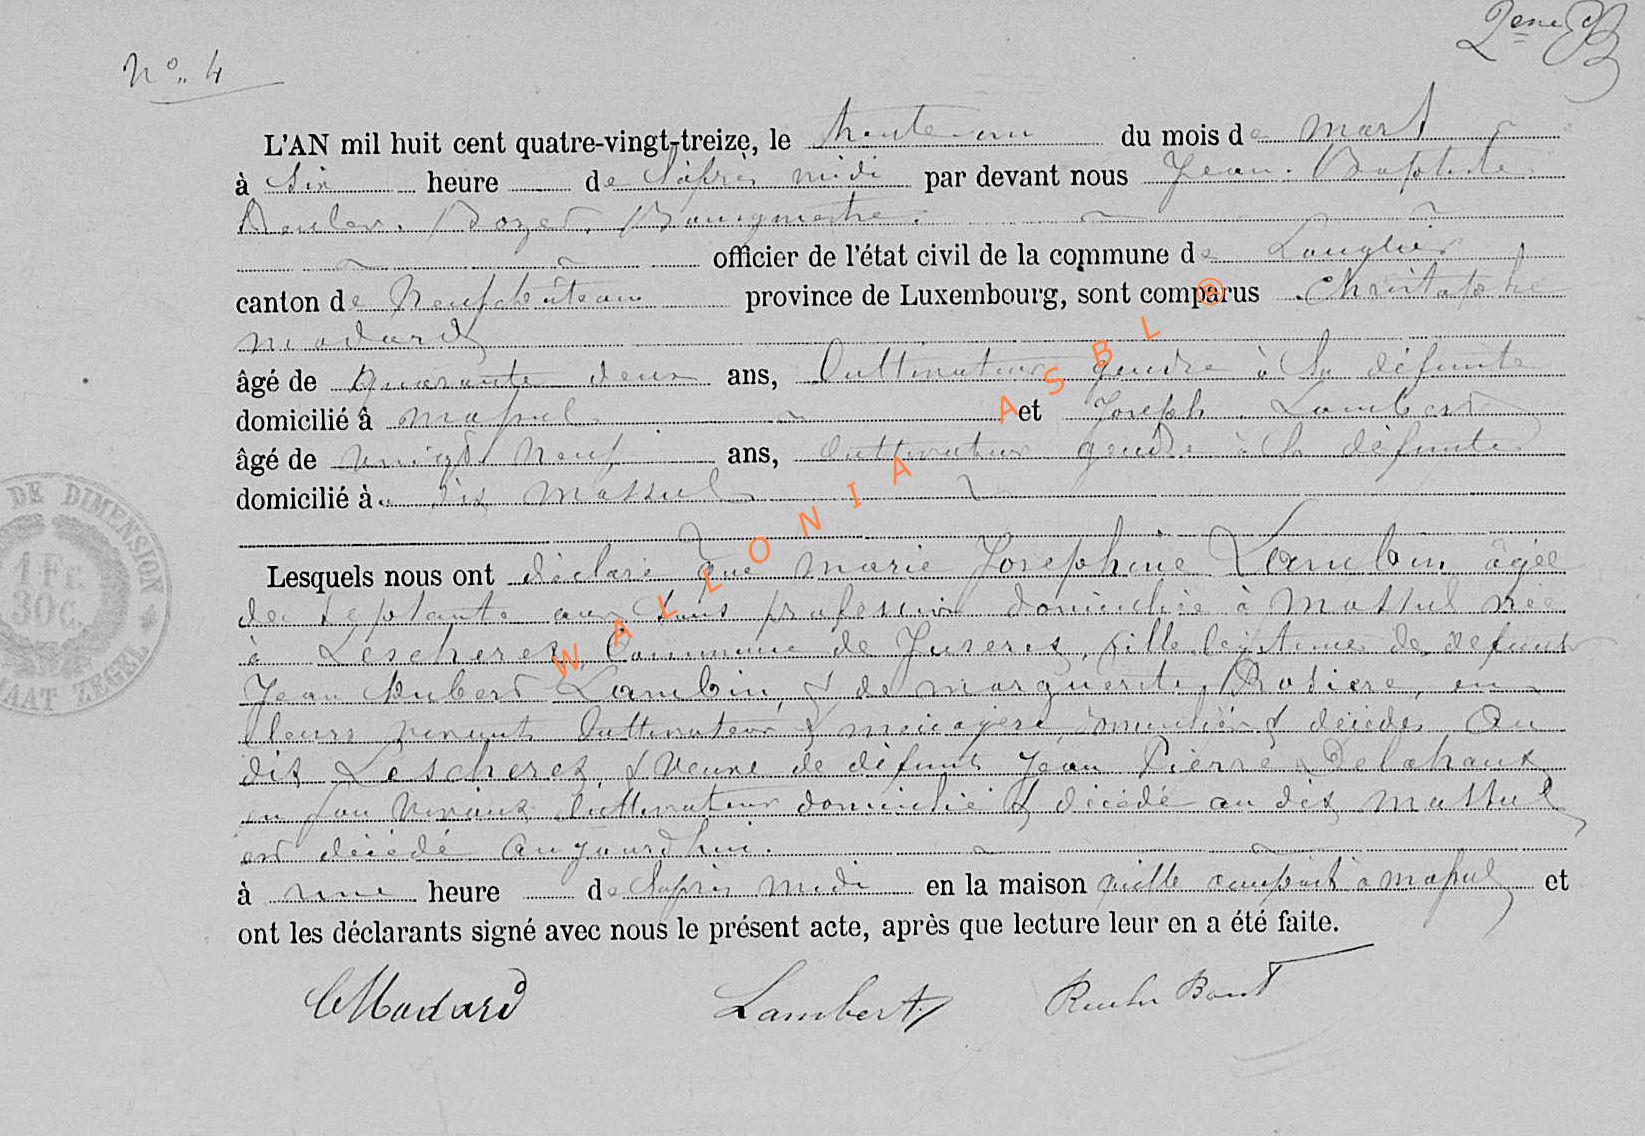 2ème B
No. 4
L'AN mil huit cent quatre-vingt-treize, le trente-un du mois de mars
à six heure de l'après midi par devant nous Jean-Baptiste
Bourgmestre.
officier de l'état civil de la commune de Longlier
canton de Neufchâteau province de Luxembourg, sont comparus Christophe
Modard
âgé de quarante deux ans, Cultivateur gendre à la défunte
domicilié à Massul et Joseph Lambert
âgé de vingt neuf ans, Cultivateur gendre à la défunte
domicilié à dit Massul
Lesquels nous ont déclaré que Marie Josephine Lambin, âgée
de septante ans sans profession domiciliée à Massul née
à Lescheret, Commune de Juseret, fille légitime de defunt
Jean Hubert Lambin, & de Marguerite Rosiere, en
leurs vivants Cultivateur & ménagère, domiciliés & décédés Au
dit Lescheret, & Veuve de défunt Jean Pierre Delahaux
en son vivant Cultivateur domicilié & décédé au dit Massul
est décédé aujourd'hui.
à une heure de l'après midi en la maison qu'elle occupait à Massul et
ont les déclarants signé avec nous le présent acte, après que lecture leur en a été faite.
CModard Lambert
DE DIMENSION
1 FR.
30 C.
MAAT ZEGEL
WALLONIA ASBL ®